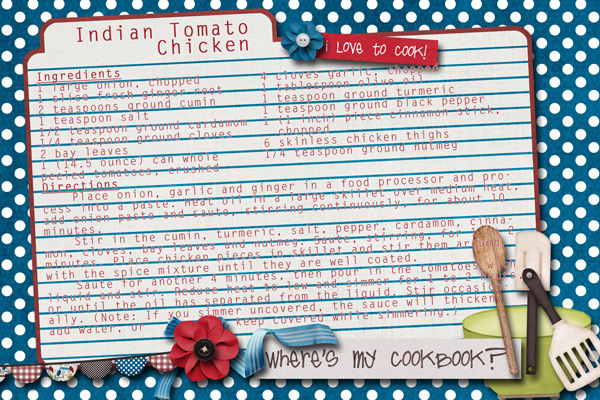 Indian Tomato
Chicken
i LOVE to COOK!
Ingredients
1 large onion, chopped
1 slice fresh ginger root
2 teaspoons ground cumin
1 teaspoon salt
1/2 teaspoon ground cardamom
1/4 teaspoon ground cloves
2 bay leaves
1 (14.5 ounce) can whole
peeled tomatoes, crushed
4 cloves garlic, chopped
1 tablespoon olive oil
1 teaspoon ground turmeric
1 teaspoon ground black pepper
1 (1 inch) piece cinnamon stick,
chopped
6 skinless chicken thighs
1/4 teaspoon ground nutmeg
Directions
Place onion, garlic and ginger in a food processor and pro-
cess into a paste. Heat oil in a large skillet over medium heat,
add onion paste and saute, stirring continuously, for about 10
minutes.
Stir in the cumin, turmeric, salt, pepper, cardamom, cinna-
mon, cloves, bay leaves and nutmeg. Saute, stirring, for 1 to 2
minutes. Place chicken pieces in skillet and stir them around
with the spice mixture until they are well coated.
Saute for another 4 minutes, then pour in the tomatoes with
liquid and stir. Reduce heat to low and simmer for 1 to 2
or until the oil has separated from the liquid. Stir occasion-
ally. (Note: If you simmer uncovered, the sauce will thicken
add water, or keep covered while simmering.)
WHERE'S MY COOKBOOK?